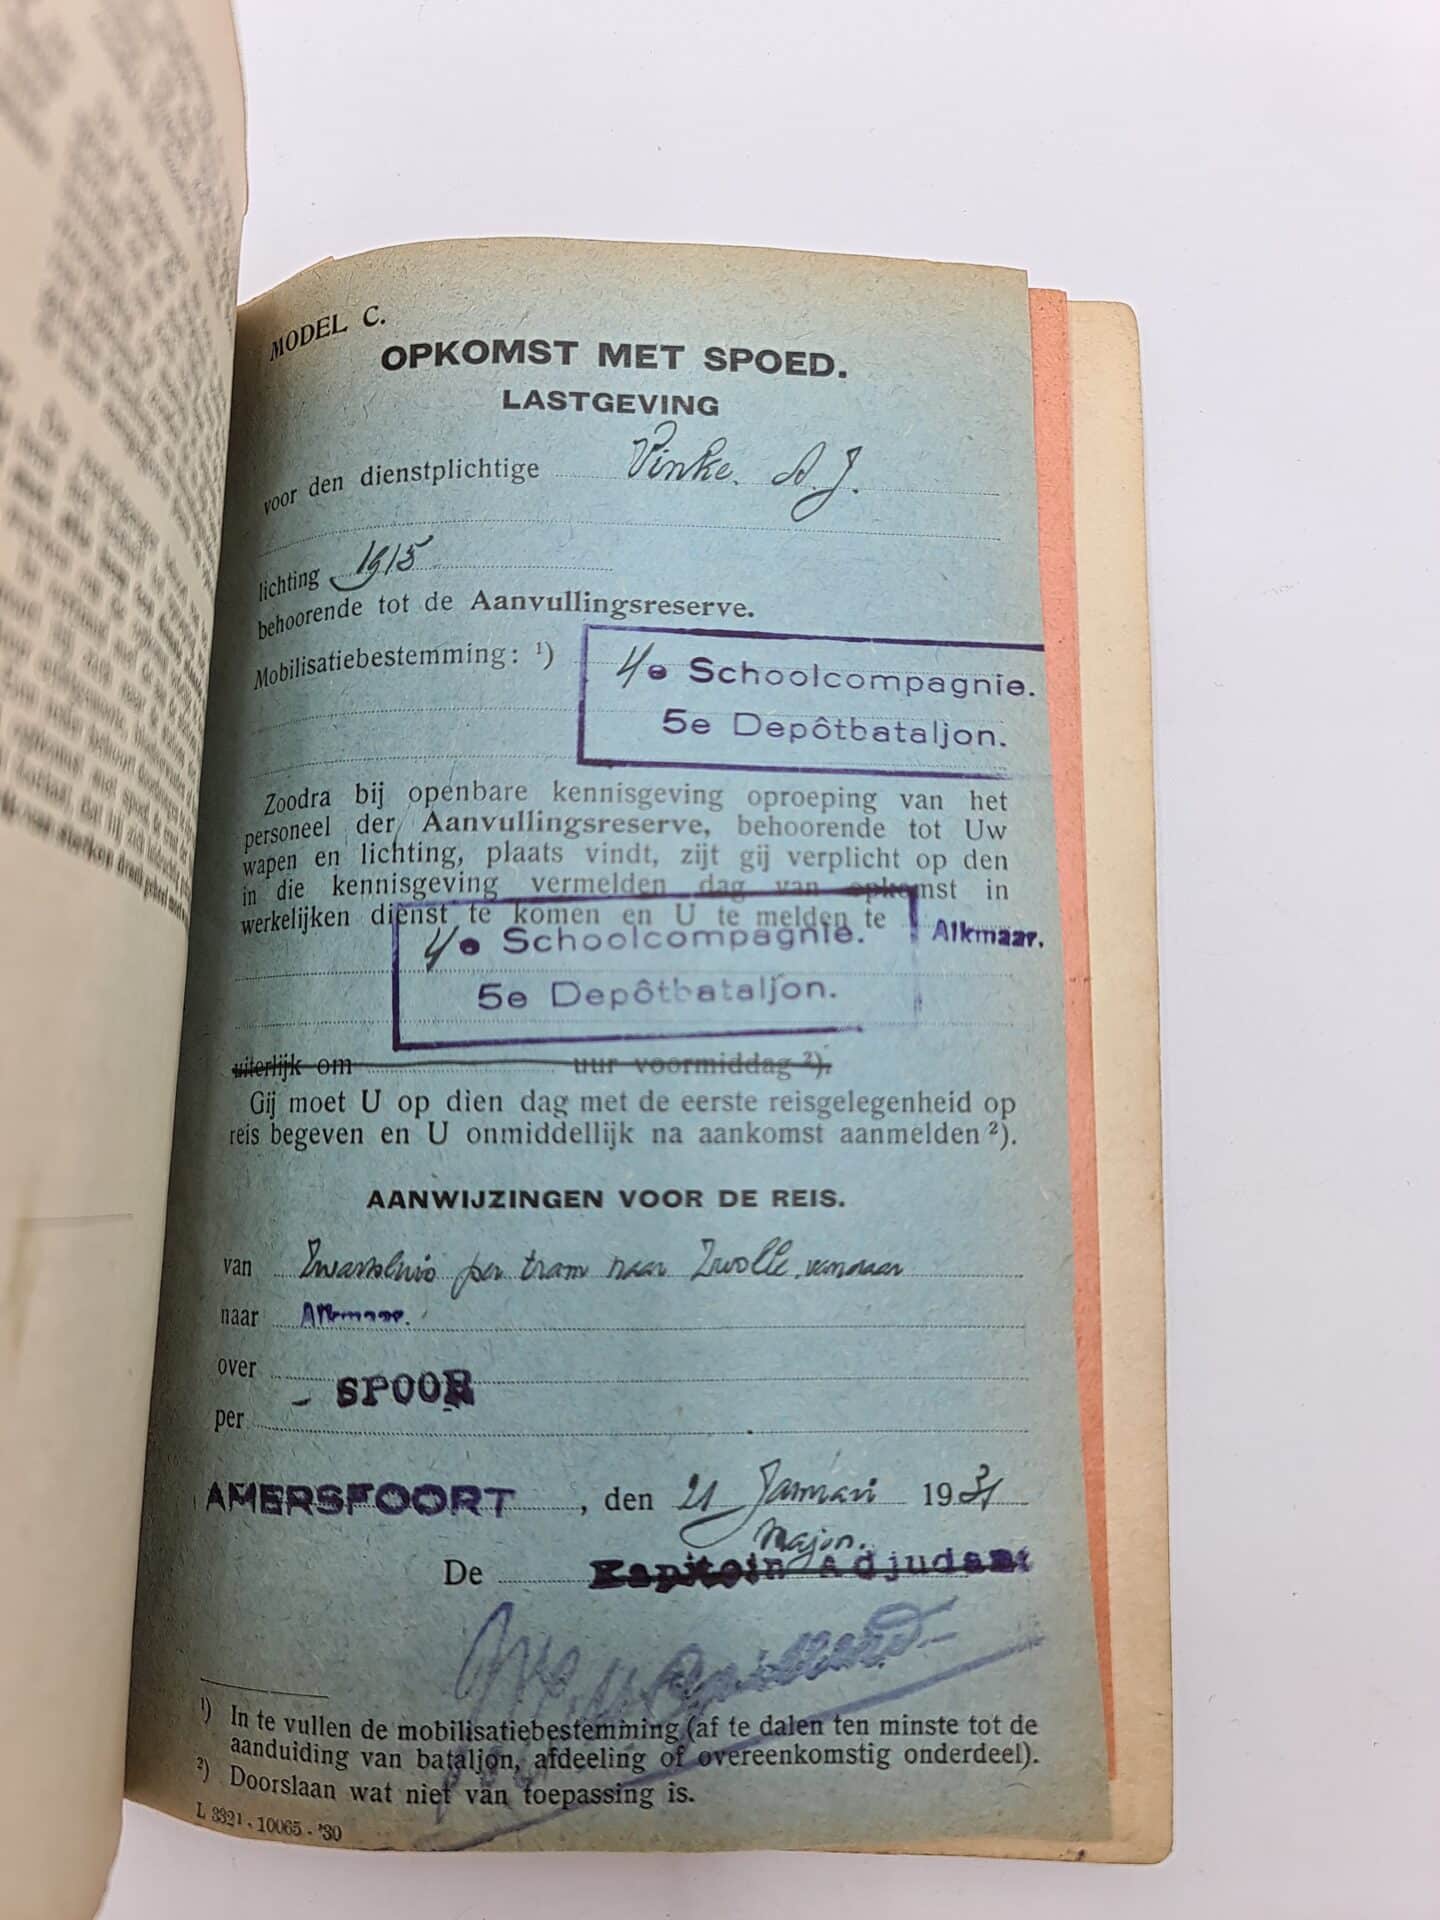 MODEL C.
OPKOMST MET SPOED.
LASTGEVING
voor den dienstplichtige Vinke. A. J.
lichting 1915
behoorende tot de Aanvullingsreserve.
Mobilisatiebestemming: ¹)
4e Schoolcompagnie.
5e Depôtbataljon.
Zoodra bij openbare kennisgeving oproeping van het
personeel der Aanvullingsreserve, behoorende tot Uw
wapen en lichting, plaats vindt, zijt gij verplicht op den
in die kennisgeving vermelden dag van opkomst in
werkelijken dienst te komen en U te melden te Alkmaar.
4e Schoolcompagnie.
5e Depôtbataljon.
uiterlijk om uur voormiddag ²).
Gij moet U op dien dag met de eerste reisgelegenheid op
reis begeven en U onmiddellijk na aankomst aanmelden ²).
AANWIJZINGEN VOOR DE REIS.
van Zwartsluis per tram naar Zwolle, vandaar
naar Alkmaar.
over
- SPOOR
per
AMERSFOORT, den 21 Januari 1931
Majoor.
De Kapitein Adjudant
¹) In te vullen de mobilisatiebestemming (af te dalen ten minste tot de
aanduiding van bataljon, afdeeling of overeenkomstig onderdeel).
²) Doorslaan wat niet van toepassing is.
L 3321 - 10065 - '30